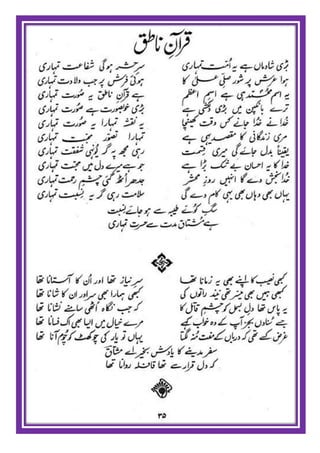 قرآنِ ناطق
بڑی شادماں ہے یہ اُمت تمہاری سرِ حشر ہو گی شفاعت تمہاری
ہوا عرش پر شور صلِّ علیٰ کا ہوئی فرش پر جب ولادت تمہاری
یہ اسمِ محمد ہی ہے اسمِ اعظم ہے قرآنِ ناطق یہ صورت تمہاری
ترے بانکپن میں بڑی دلکشی ہے بڑی خوبصورت ہے صورت تمہاری
خدا نے خدا جانے کس وقت کھینچا یہ نقشہ تمہارا یہ صورت تمہاری
مری زندگانی کا مقصد یہی ہے تمہارا تصور محبت تمہاری
یقیناً بدل جائے گی میری قسمت رہی مجھ پہ گر یونہی شفقت تمہاری
خدا کا یہ احسان بے شک بڑا ہے جو ہے میرے دل میں محبت تمہاری
خدا بخش دے گا انہیں روزِ محشر جدھر اُٹھ گئی چشمِ رحمت تمہاری
یہاں بھی وہاں بھی یہی کام دے گی سلامت رہی گر یہ نسبت تمہاری
سگِ کوئے طیبہ سے ہو جائے نسبت
ہے مشتاق مدت سے حسرت تمہاری
کبھی نصیب کا اپنے بھی یہ زمانا تھا سرِ نیاز تھا اور اُن کا آستانا تھا
کبھی ہمیں بھی میسر تھی نیند راتوں کی کبھی ہمارا بھی سر اور ان کا شانا تھا
یہ پاس تھا دلِ بسمل کو چشمِ قاتل کا کہ جب نگاہ اُٹھی سامنے نشانا تھا
جسے سُناؤں بجز آپ کے وہ خواب کسے مرے خیال میں ایسا بھی اک فسانا تھا
غرض کسے تھی کہ درباں کے مفت منہ لگتا یہاں تو یار کی چوکھٹ کو چُوم آنا تھا
سفر مدینے کا یادش بخیر اے مشتاق
کہ دل قرار سے تھا قافلہ روانا تھا
۳۵